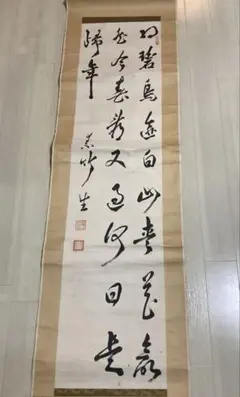 江碧鳥逾白山青花欲
然今春看又過何日是
歸年
竹生